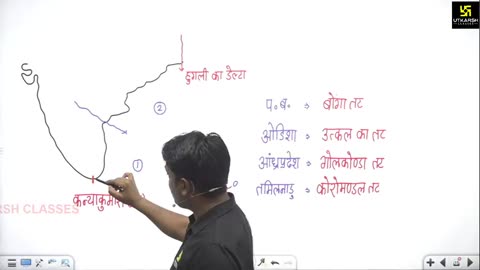 UTKARSH
CLASSES
हुगली का डेल्टा
②
प॰ब॰ → बोंगा तट
ओडिशा → उत्कल का तट
①
आंध्रप्रदेश → गोलकोण्डा तट
तमिलनाडु → कोरोमण्डल तट
कन्याकुमारी
RSH CLASSES